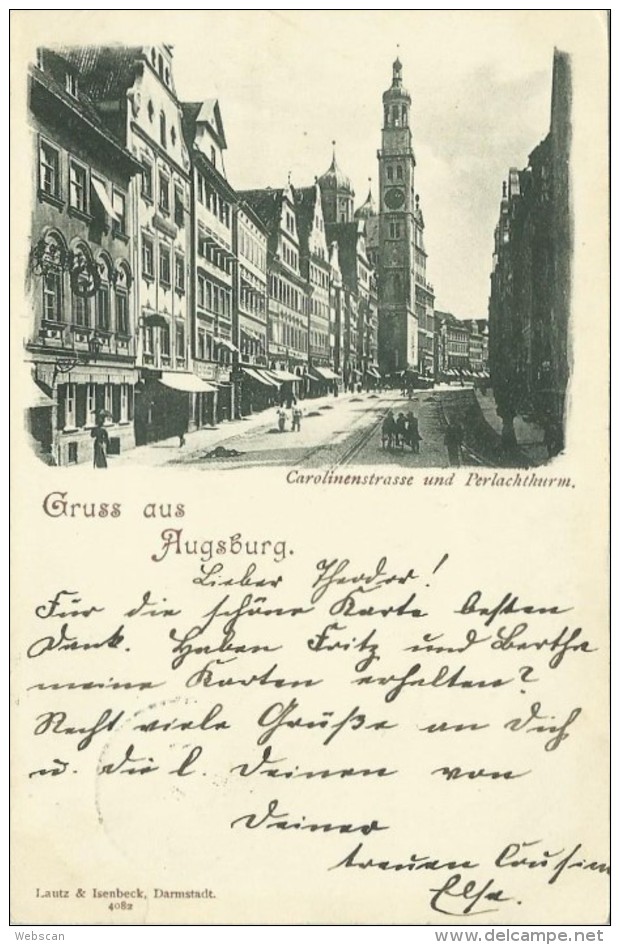 Carolinenstrasse und Perlachthurm.
Gruss aus
Augsburg.
Lieber Theodor!
Für die schöne Karte besten
Dank. Haben Fritz und Bertha
meine Karten erhalten?
Recht viele Grüße an Dich
u. die l. Deinen von
Deiner
treuen Cousine
Elsa.
Lautz & Isenbeck, Darmstadt.
4082
Webscan
www.delcampe.net